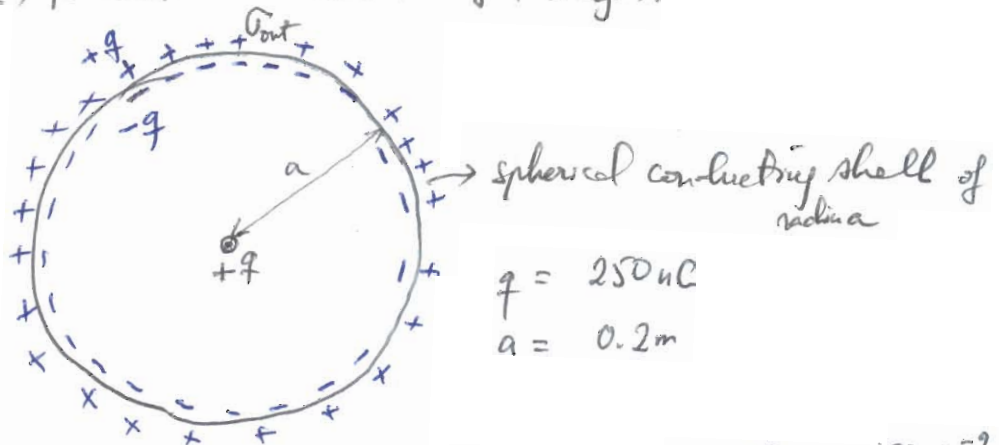 σout
q
-q
a
→ spherical conducting shell of
radius a
+q
q = 250 nC
a = 0.2m